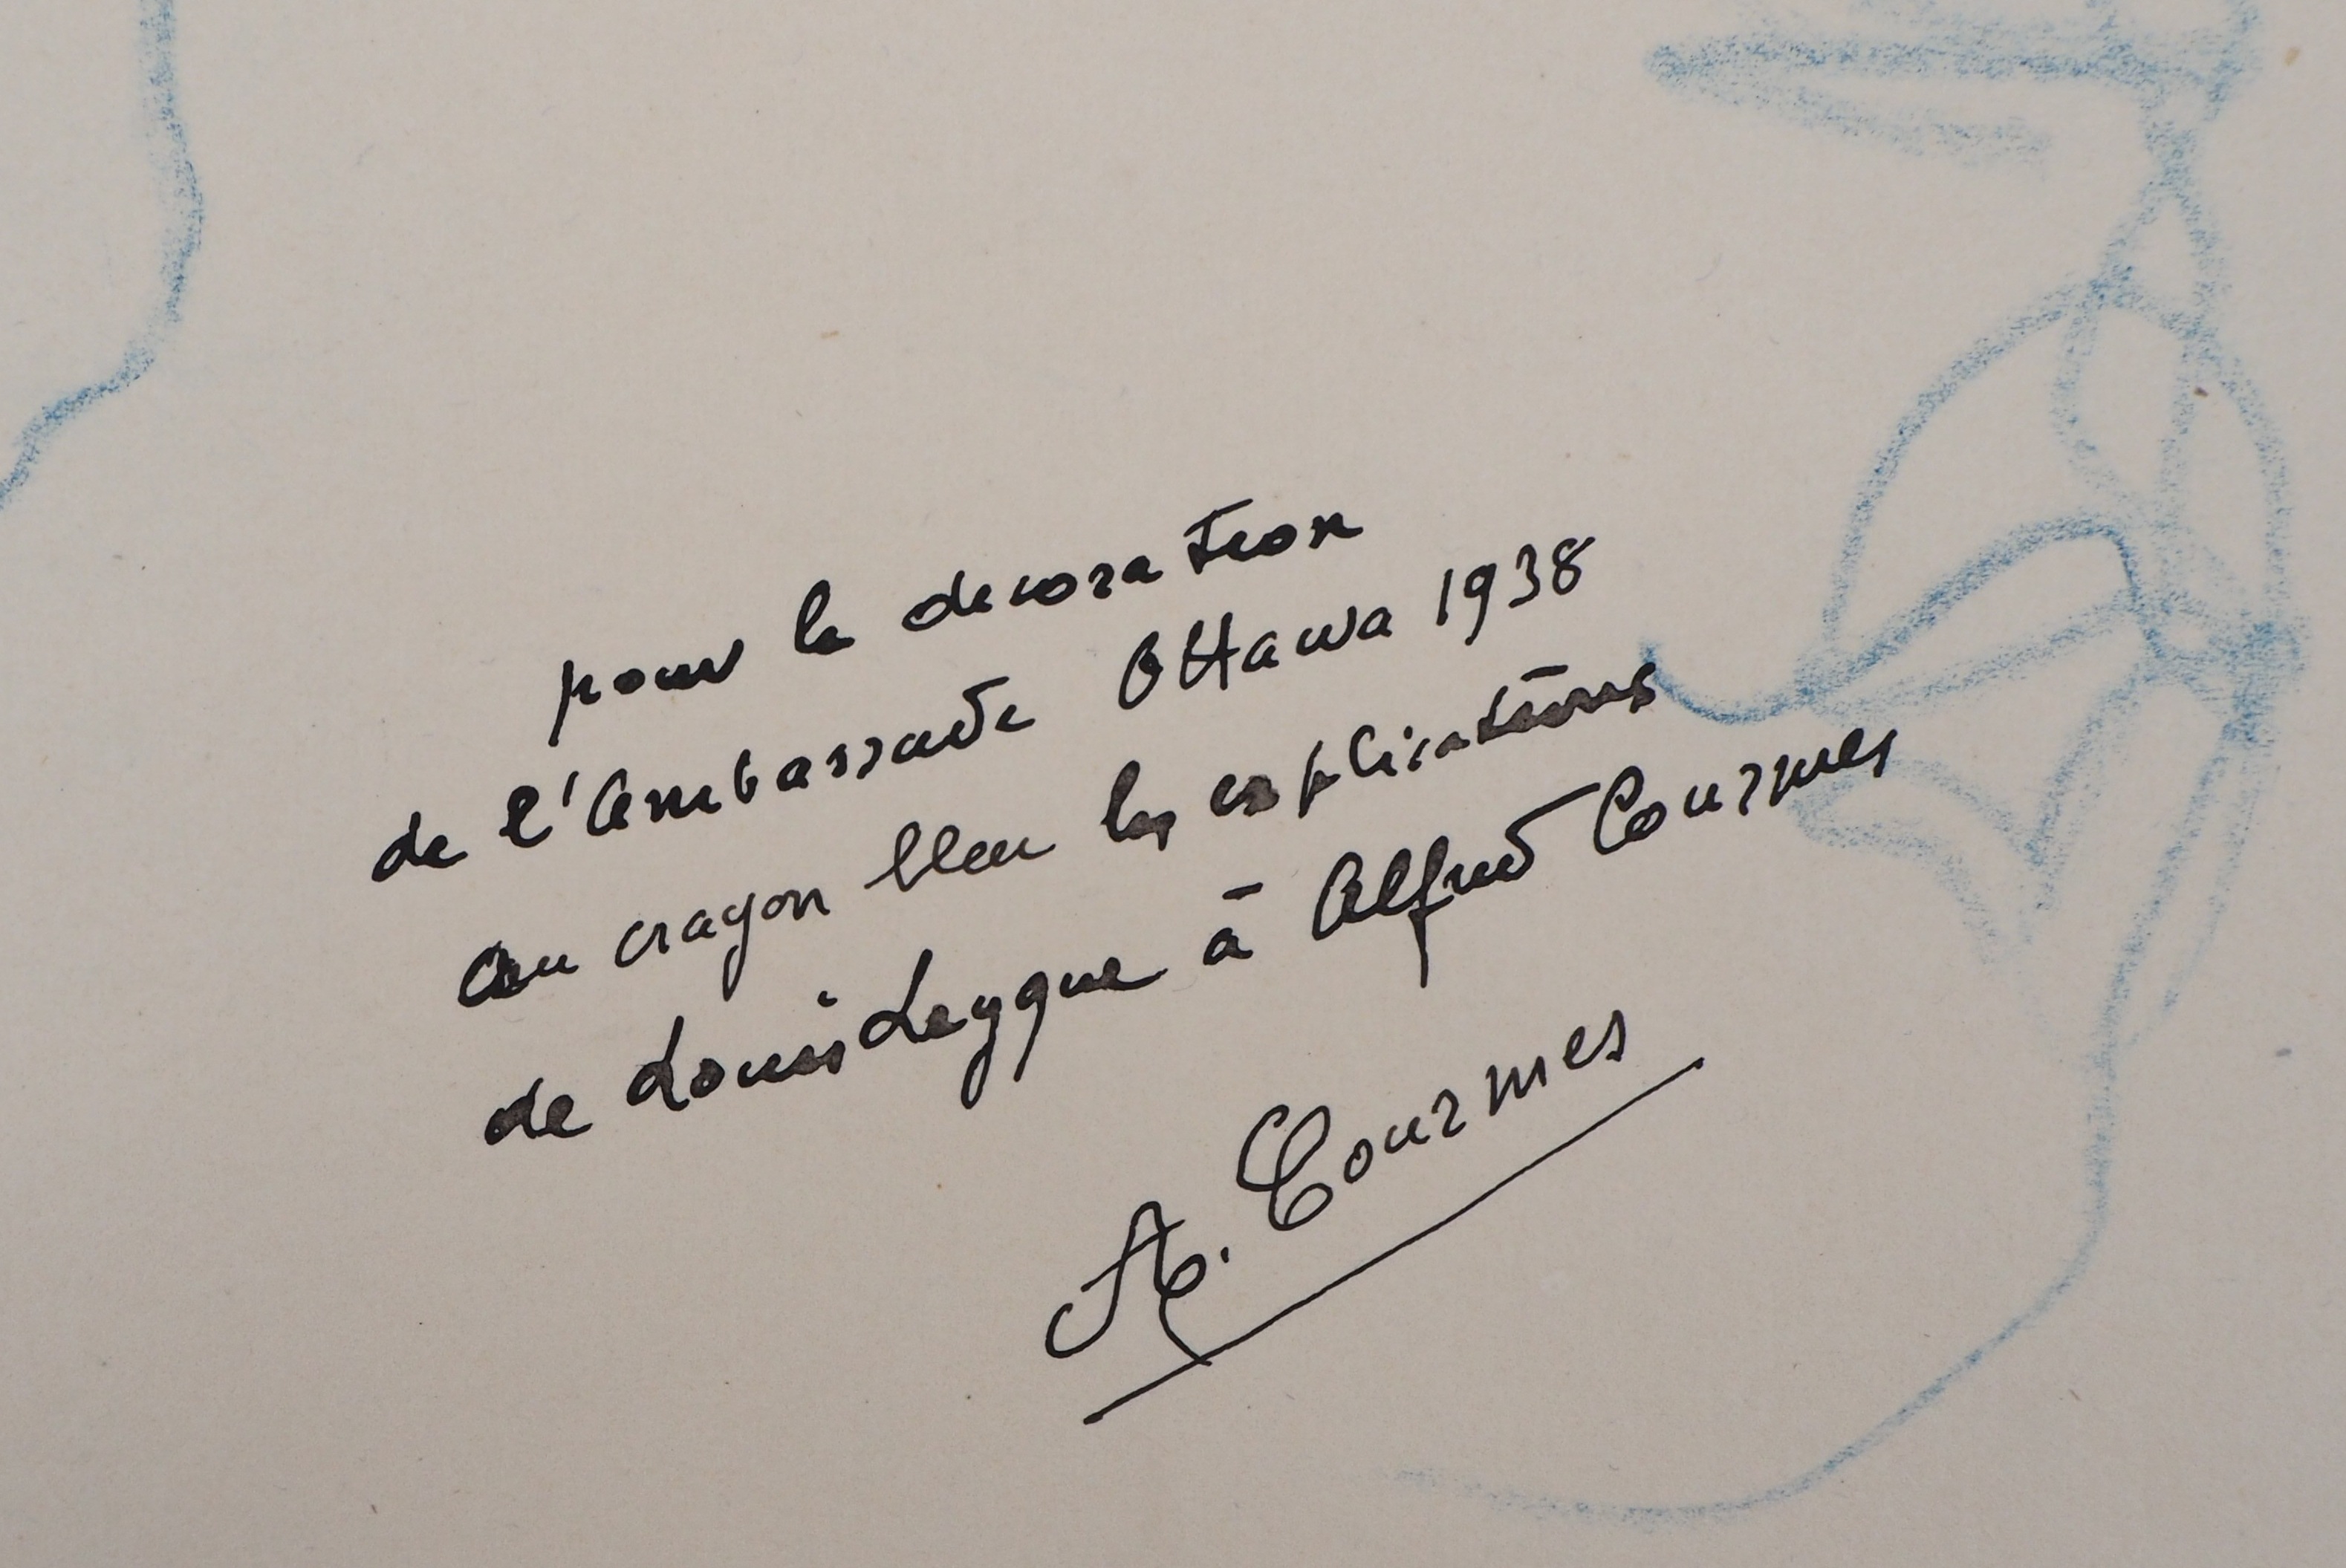 pour la decoration
de l'Ambassade Ottawa 1938
au crayon bleu les explications
de Louis Leygue à Alfred Courmes
A. Courmes